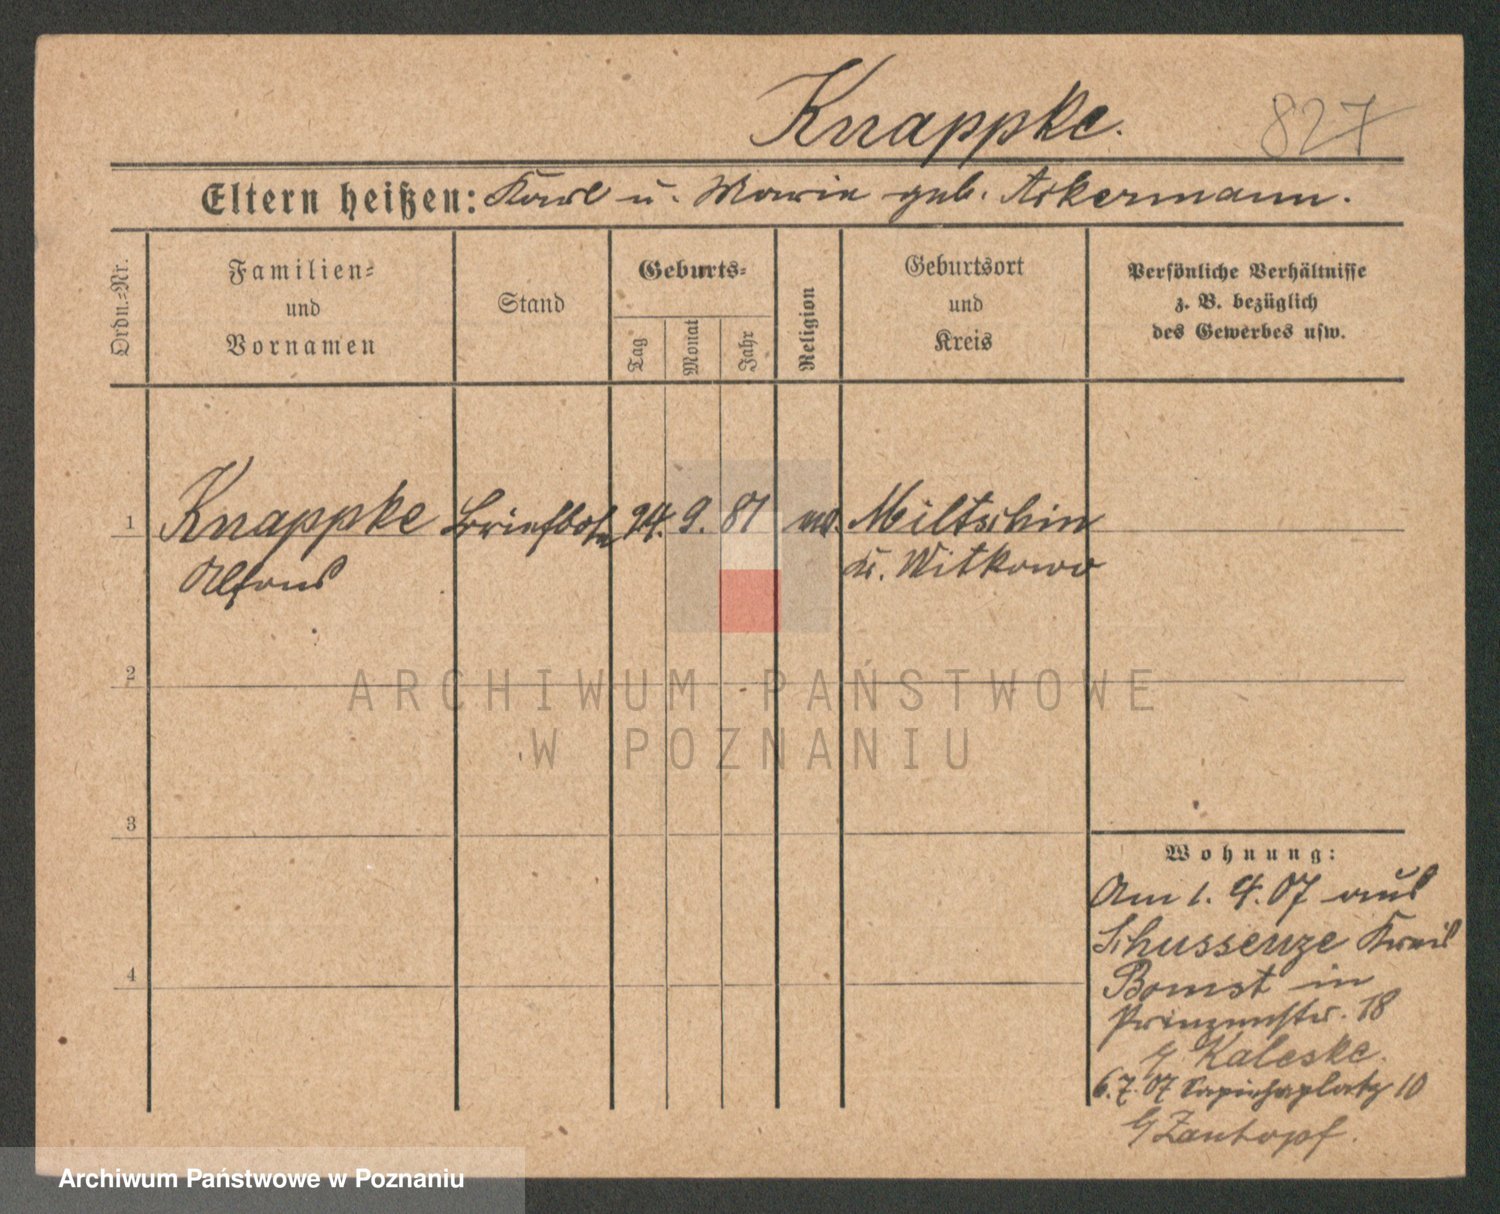 Knappke.
827
Eltern heißen: Karl u. Maria geb. Ackermann.
Ordn.-Nr.
Familien-
und
Vornamen
Stand
Geburts-
Tag
Monat
Jahr
Religion
Geburtsort
und
Kreis
Persönliche Verhältnisse
z. B. bezüglich
des Gewerbes usw.
1
Knappke
Alfons
Briefbote
24. 9. 81
Miltschin
Kr. Witkowo
2
3
4
Wohnung:
Am 1. 4. 07 aus
Schussenze Kreis
Bomst in
Prinzenstr. 18
b/ Kaleske.
6.7.07 Sapiehaplatz 10
b/ Zantopf.
ARCHIWUM PAŃSTWOWE
W POZNANIU
Archiwum Państwowe w Poznaniu